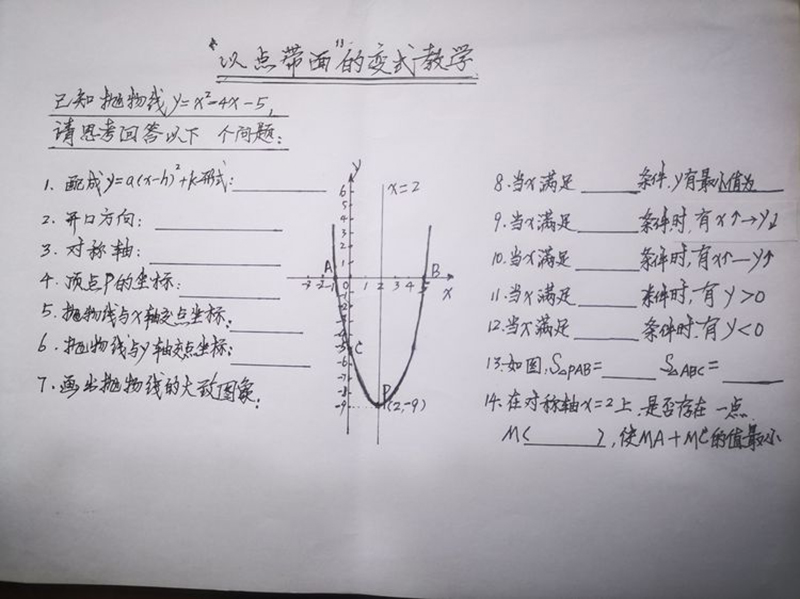 “以点带面”的变式教学
已知抛物线y=x²-4x-5,
请思考回答以下 个问题:
1. 配成y=a(x-h)²+k形式:
2. 开口方向:
3. 对称轴:
4. 顶点P的坐标:
5. 抛物线与x轴交点坐标:
6. 抛物线与y轴交点坐标:
7. 画出抛物线的大致图象:
y
x=2
6
5
4
3
2
1
A
B
-3 -2 -1 0 1 2 3 4 5
x
-1
-2
-3
-4
-5
C
-6
-7
-8
-9
P
(2,-9)
8. 当x满足 条件,y有最小值为
9. 当x满足 条件时,有x↑→y↓
10. 当x满足 条件时,有x↑—y↑
11. 当x满足 条件时,有y>0
12. 当x满足 条件时,有y<0
13. 如图,S△PAB= S△ABC=
14. 在对称轴x=2上,是否存在一点
M( ),使MA+MC的值最小